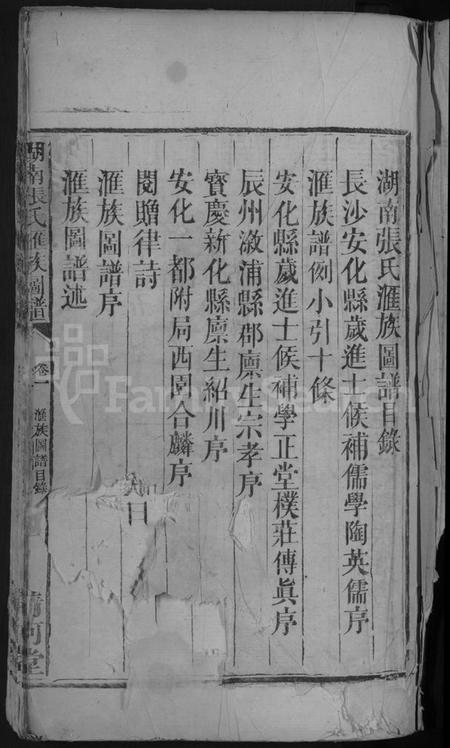 湖南張氏滙族圖譜目錄
長沙安化縣歲進士候補儒學陶英儒序
滙族譜例小引十條
安化縣歲進士候補學正堂樸莊傳眞序
辰州溆浦縣郡廪生宗孝序
寳慶新化縣廪生紹川序
安化一都附局西園合麟序
閱贈律詩
滙族圖譜序
滙族圖譜述
湖南張氏滙族圖譜
卷一
滙族圖譜目錄
清河堂